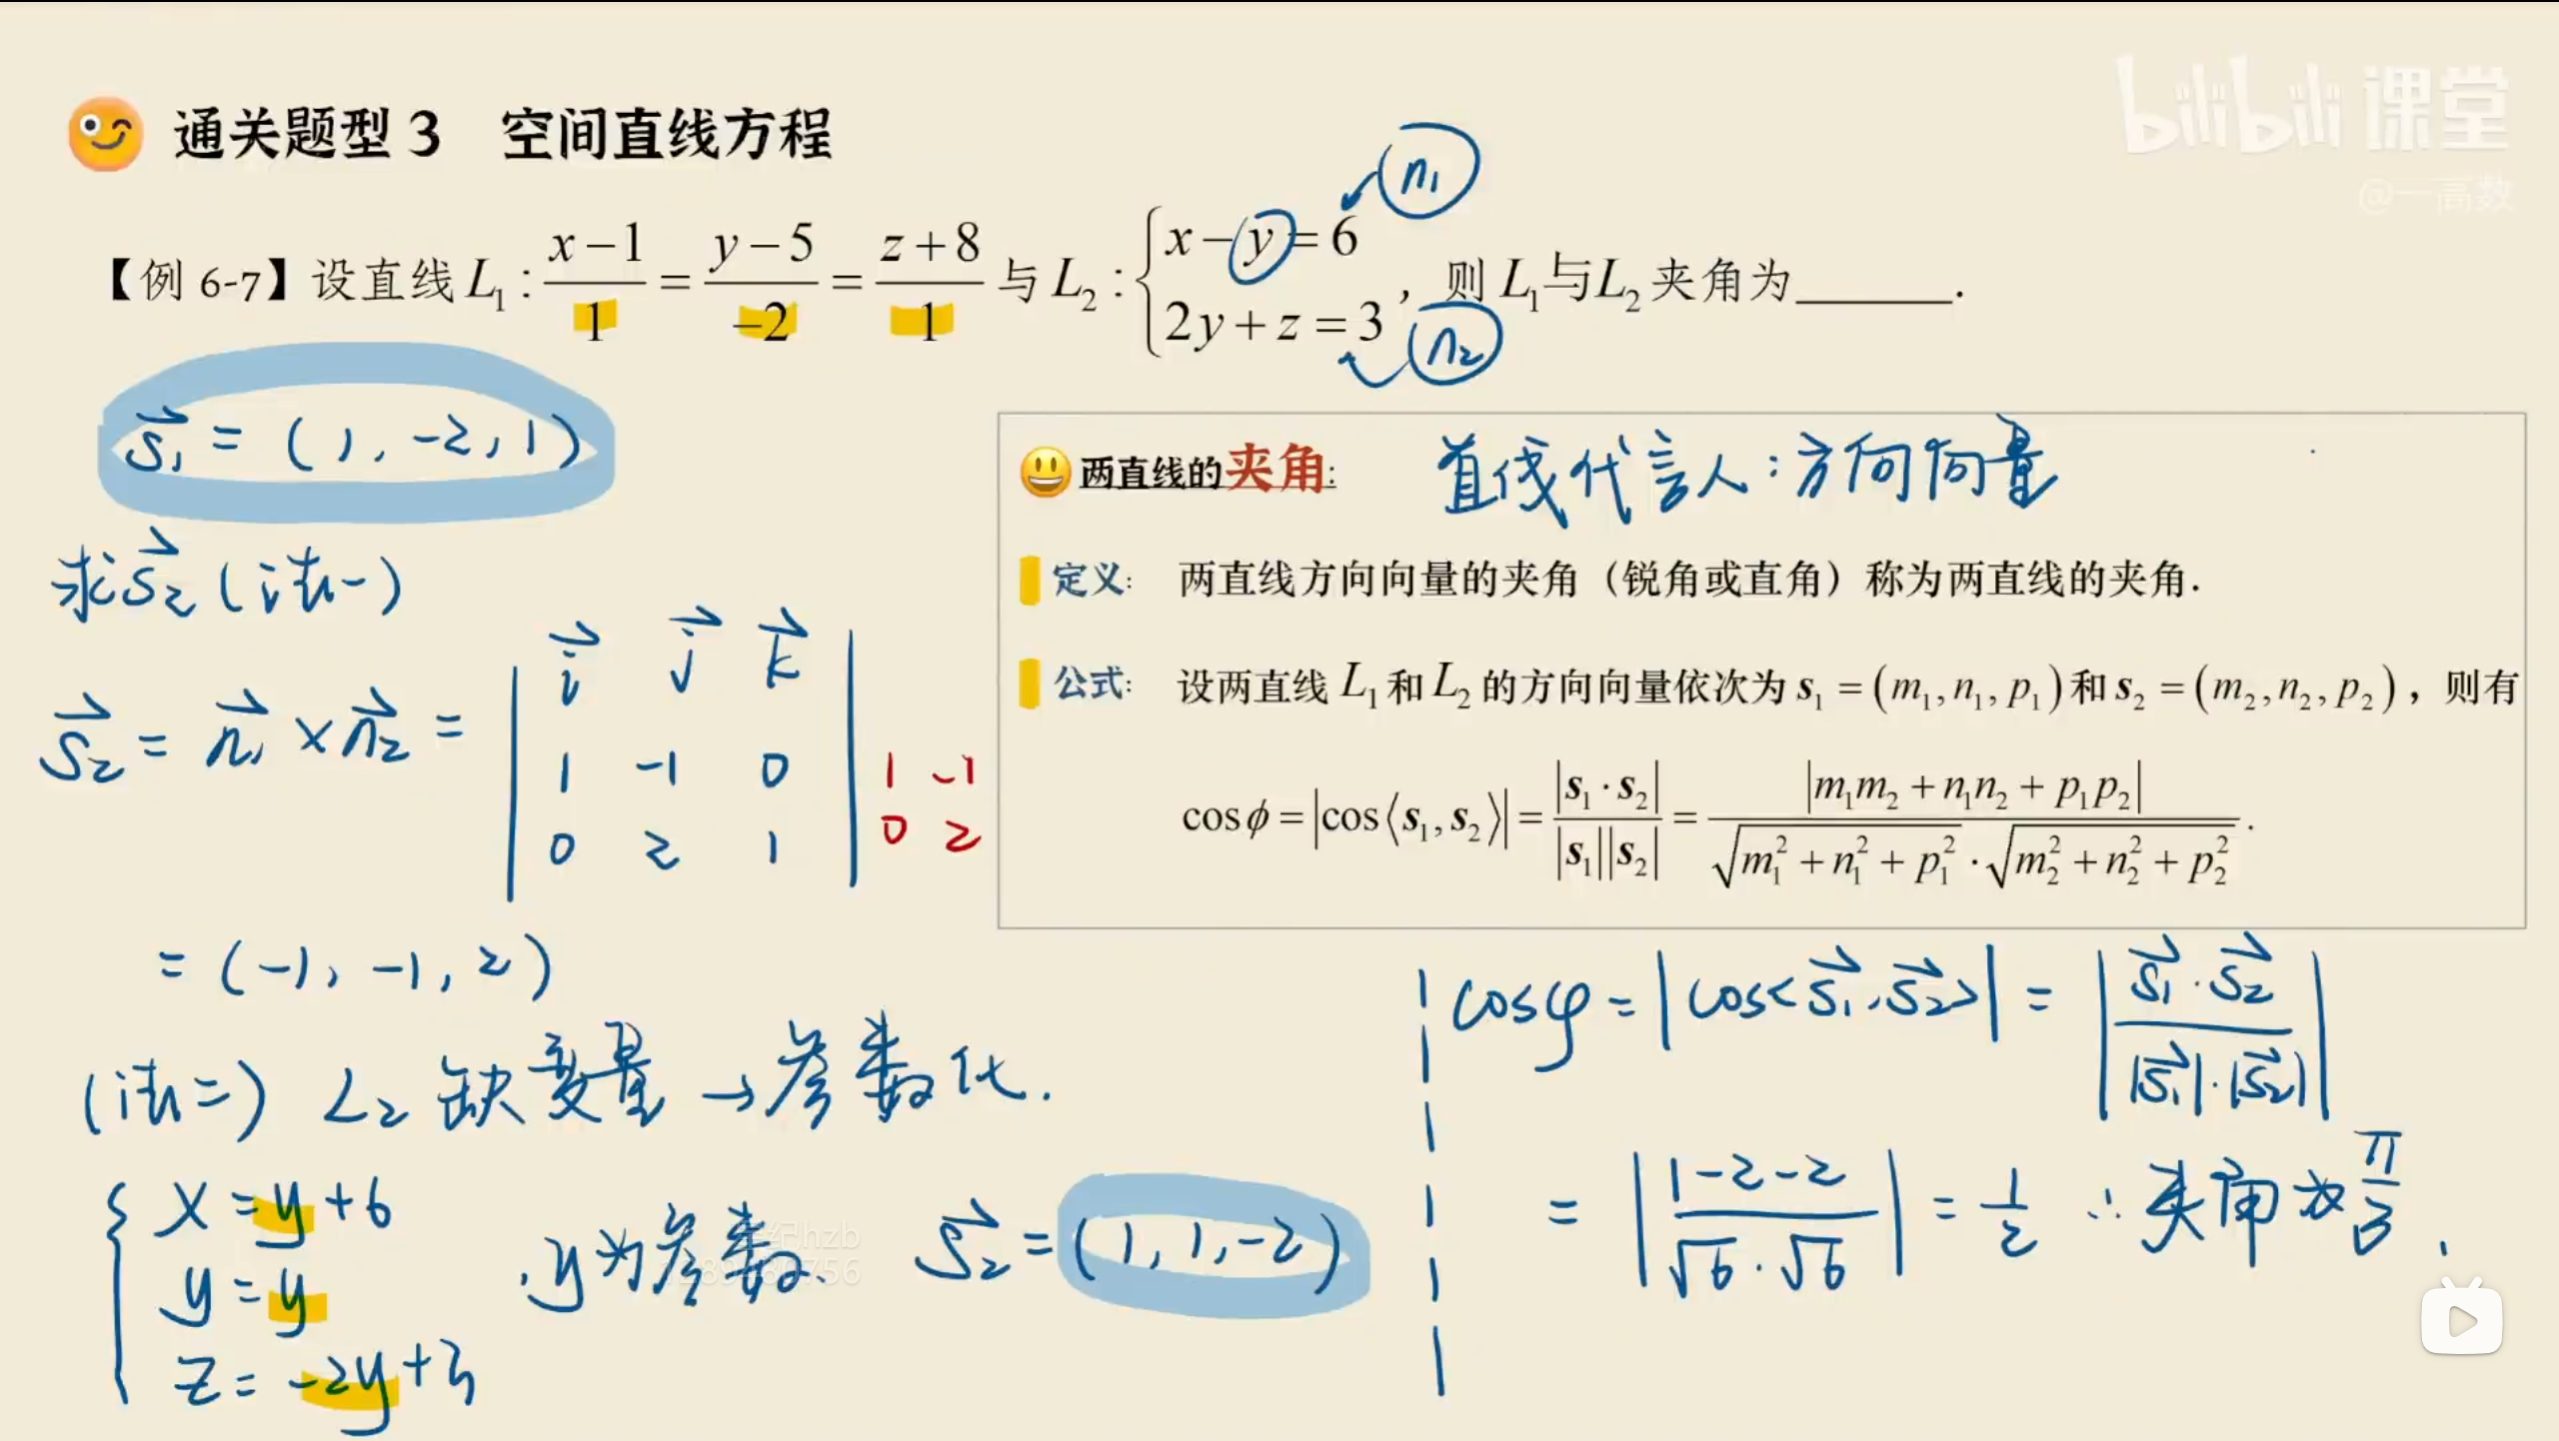 bilibili 课堂
@一高数
通关题型 3 空间直线方程
【例 6-7】设直线 L₁ : (x−1)/1 = (y−5)/(−2) = (z+8)/1 与 L₂ : { x − y = 6, 2y + z = 3 ，则 L₁与L₂ 夹角为______.
n₁
n₂
s⃗₁ = (1, -2, 1)
求s⃗₂ (法一)
s⃗₂ = n⃗₁ × n⃗₂ =
| i⃗ j⃗ k⃗ |
| 1 -1 0 | 1 -1
| 0 2 1 | 0 2
= (-1, -1, 2)
(法二) L₂ 缺变量 → 参数化.
{ x = y + 6
y = y
z = -2y + 3
, y为参数. s⃗₂ = (1, 1, -2)
两直线的夹角: 直线代言人：方向向量
定义: 两直线方向向量的夹角（锐角或直角）称为两直线的夹角.
公式: 设两直线 L₁ 和 L₂ 的方向向量依次为 s₁ = (m₁, n₁, p₁) 和 s₂ = (m₂, n₂, p₂)，则有
cos ϕ = |cos⟨s₁, s₂⟩| = |s₁ · s₂| / |s₁||s₂| = |m₁m₂ + n₁n₂ + p₁p₂| / (√(m₁² + n₁² + p₁²) · √(m₂² + n₂² + p₂²)).
cosφ = |cos<s⃗₁, s⃗₂>| = | s⃗₁ · s⃗₂ / |s⃗₁|·|s⃗₂| |
= | (1-2-2) / (√6 · √6) | = 1/2 ∴ 夹角为 π/3.